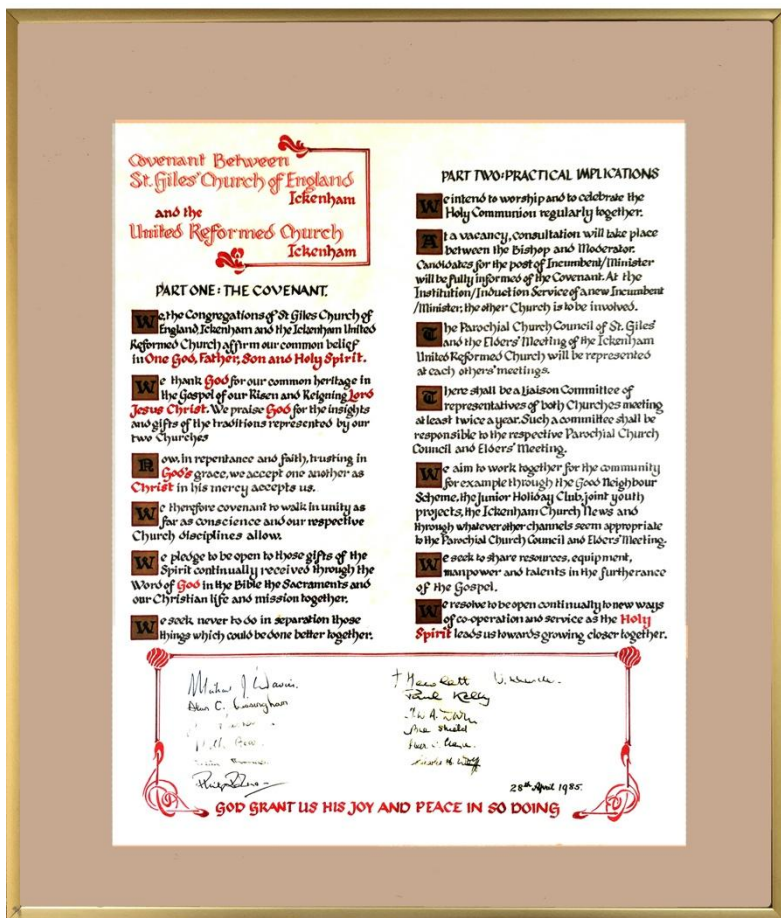 Covenant Between
St. Giles' Church of England
Ickenham
and the
United Reformed Church
Ickenham
PART ONE: THE COVENANT.
We, the Congregations of St Giles Church of
England, Ickenham and the Ickenham United
Reformed Church affirm our common belief
in One God, Father, Son and Holy Spirit.
We thank God for our common heritage in
the Gospel of our Risen and Reigning Lord
Jesus Christ. We praise God for the insights
and gifts of the traditions represented by our
two Churches
Now, in repentance and faith, trusting in
God's grace, we accept one another as
Christ in his mercy accepts us.
We therefore covenant to walk in unity as
far as conscience and our respective
Church disciplines allow.
We pledge to be open to those gifts of the
Spirit continually received through the
Word of God in the Bible the Sacraments and
our Christian life and mission together.
We seek never to do in separation those
things which could be done better together.
PART TWO: PRACTICAL IMPLICATIONS
We intend to worship and to celebrate the
Holy Communion regularly together.
At a vacancy, consultation will take place
between the Bishop and Moderator.
Candidates for the post of Incumbent/Minister
will be fully informed of the Covenant. At the
Institution/Induction Service of a new Incumbent
/Minister, the other Church is to be involved.
The Parochial Church Council of St. Giles'
and the Elders' Meeting of the Ickenham
United Reformed Church will be represented
at each others' meetings.
There shall be a Liaison Committee of
representatives of both Churches meeting
at least twice a year. Such a committee shall be
responsible to the respective Parochial Church
Council and Elders' Meeting.
We aim to work together for the community
for example through the Good Neighbour
Scheme, the Junior Holiday Club, joint youth
projects, the Ickenham Church News and
through whatever other channels seem appropriate
to the Parochial Church Council and Elders' Meeting.
We seek to share resources, equipment,
manpower and talents in the furtherance
of the Gospel.
We resolve to be open continually to new ways
of co-operation and service as the Holy
Spirit leads us towards growing closer together.
Michael J.
Alan C. Cunningham
Paul Kelly
Shield
28th April 1985
GOD GRANT US HIS JOY AND PEACE IN SO DOING